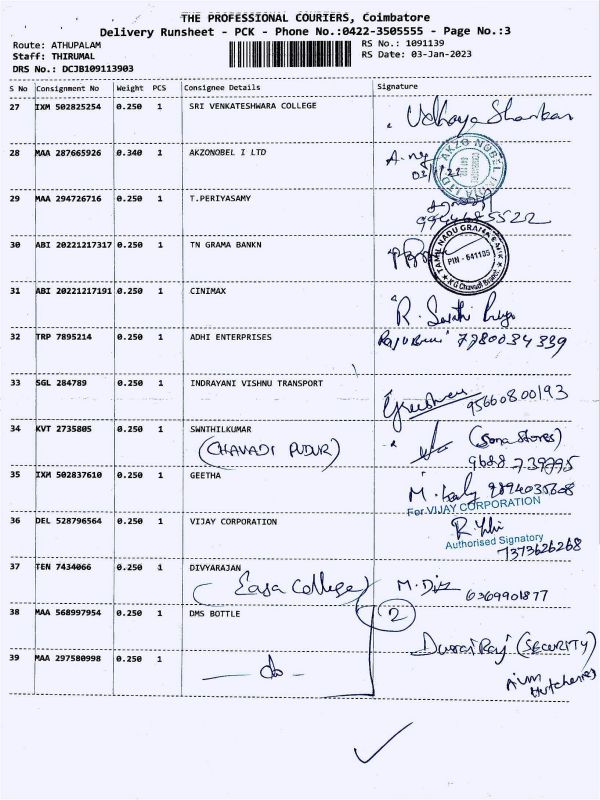 THE PROFESSIONAL COURIERS, Coimbatore
Delivery Runsheet - PCK - Phone No.:0422-3505555 - Page No.:3
Route: ATHUPALAM
Staff: THIRUMAL
DRS No.: DCJB109113903
RS No.: 1091139
RS Date: 03-Jan-2023
S No Consignment No Weight PCS Consignee Details Signature
27 IXM 502825254 0.250 1 SRI VENKATESHWARA COLLEGE Udhaya Shankar
28 MAA 287665926 0.340 1 AKZONOBEL I LTD
AKZO NOBEL INDIA LTD
29 MAA 294726716 0.250 1 T.PERIYASAMY
9944685522
30 ABI 20221217317 0.250 1 TN GRAMA BANKN
TAMIL NADU GRAMA BANK
PIN - 641105
K G Chavadi Branch
31 ABI 20221217191 0.250 1 CINIMAX
R.
32 TRP 7895214 0.250 1 ADHI ENTERPRISES 7780034339
33 SGL 284789 0.250 1 INDRAYANI VISHNU TRANSPORT
95660800193
34 KVT 2735805 0.250 1 SWNTHILKUMAR (Sona Stores)
(CHAVADI PUDUR) 9688739795
35 IXM 502837610 0.250 1 GEETHA
9894035608
For VIJAY CORPORATION
36 DEL 528796564 0.250 1 VIJAY CORPORATION
Authorised Signatory
7373626268
37 TEN 7434066 0.250 1 DIVYARAJAN
(Easa College) 6369901877
38 MAA 568997954 0.250 1 DMS BOTTLE 2
Durai Raj (SECURITY)
39 MAA 297580998 0.250 1
do